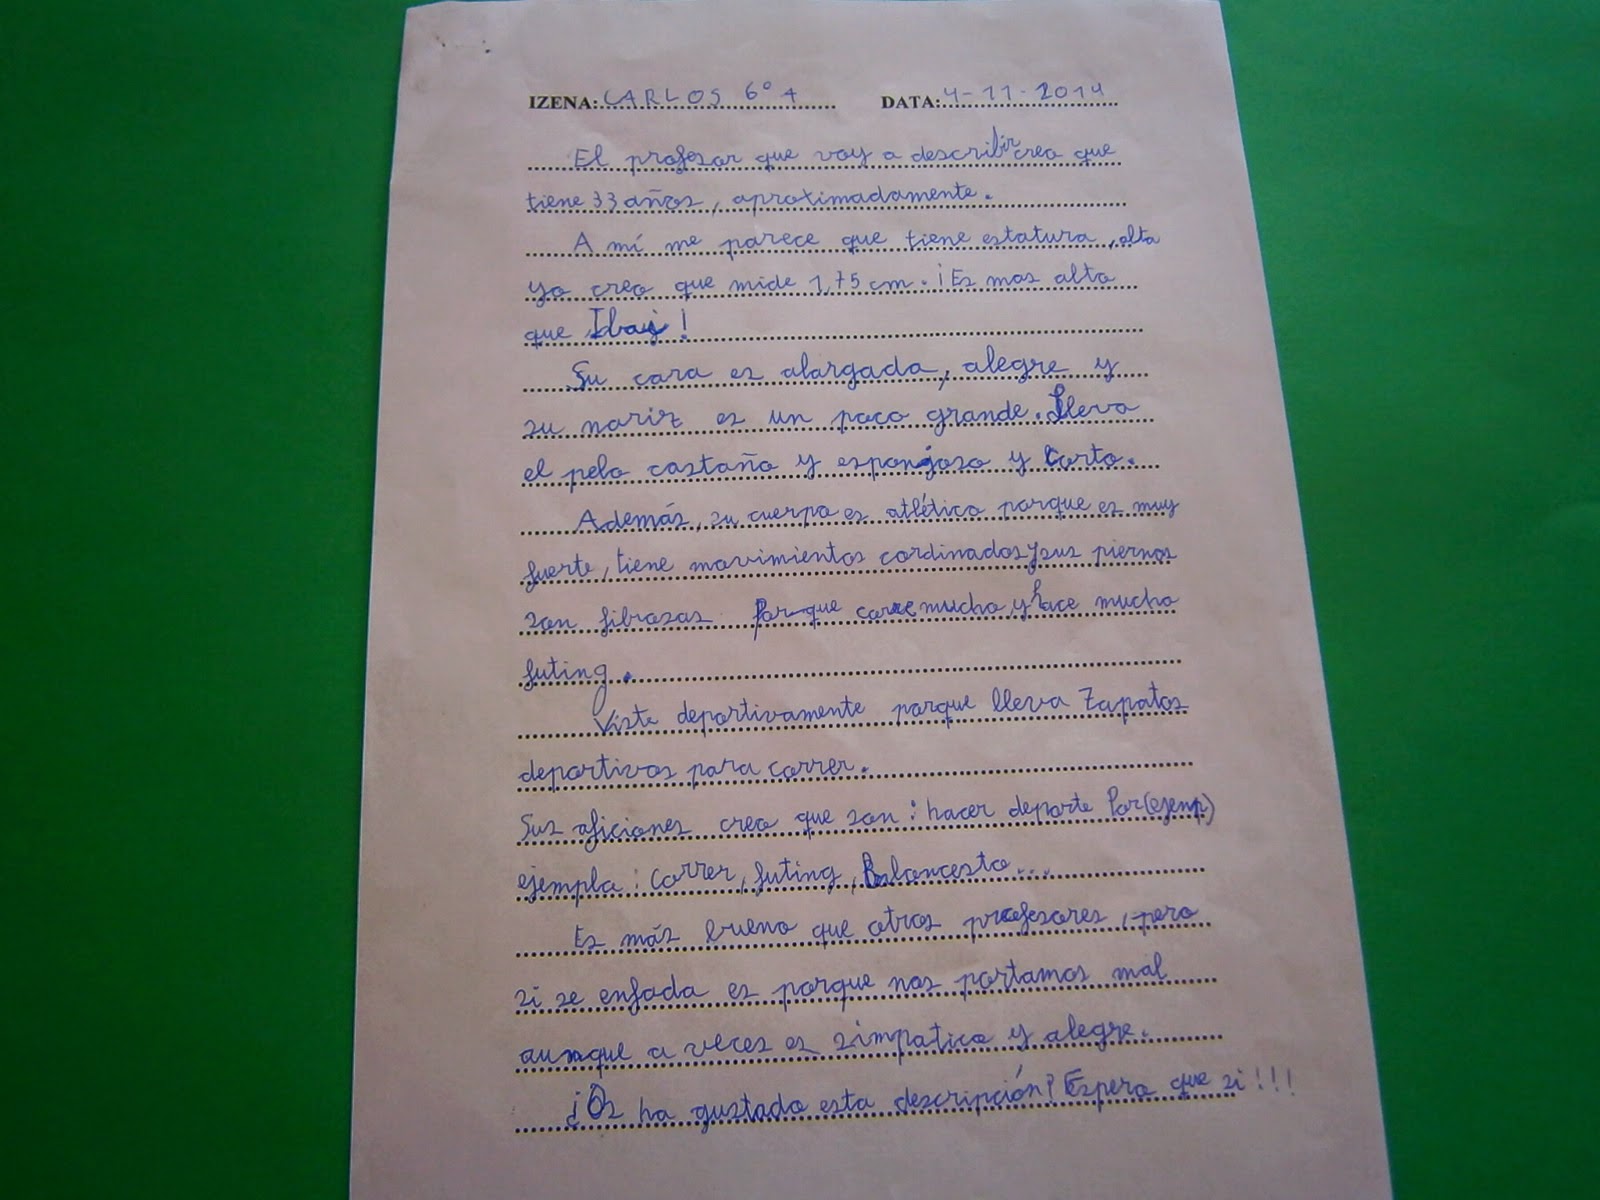 IZENA: CARLOS 6º A DATA: 4-11-2014
El profesor que voy a describir creo que
tiene 33 años, aproximadamente.
A mí me parece que tiene estatura, alta
yo creo que mide 1,75 cm. ¡Es mas alto
que Ibai!
Su cara es alargada, alegre y
su nariz es un poco grande. Lleva
el pelo castaño y esponjoso y corto.
Además, su cuerpo es atlético porque es muy
fuerte, tiene movimientos cordinados y sus piernas
son fibrosas. Por que corre mucho, y hace mucho
futing.
Viste deportivamente porque lleva Zapatos
deportivos para correr.
Sus aficiones creo que son: hacer deporte Por (ejemp)
ejemplo: Correr, futing, Baloncesto...
Es más bueno que otros profesores, pero
si se enfada es porque nos portamos mal
aunque a veces es simpatico y alegre.
¿Os ha gustado esta descripción? Espero que si!!!